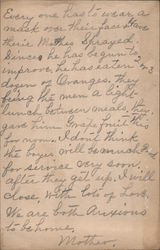 Every one has to wear a
mask over their face & have
their Mouths Sprayed.
Since he has begun to
improve, he has eaten 2 or 3
dozen of Oranges, they
bring the men a light
lunch between meals, they
gave him Grape fruit this
for noon. I don't think
the boys will be much good
for service very soon
after they get up. I will
close, with lots of Love.
We are both Anxious
to be home.
Mother.